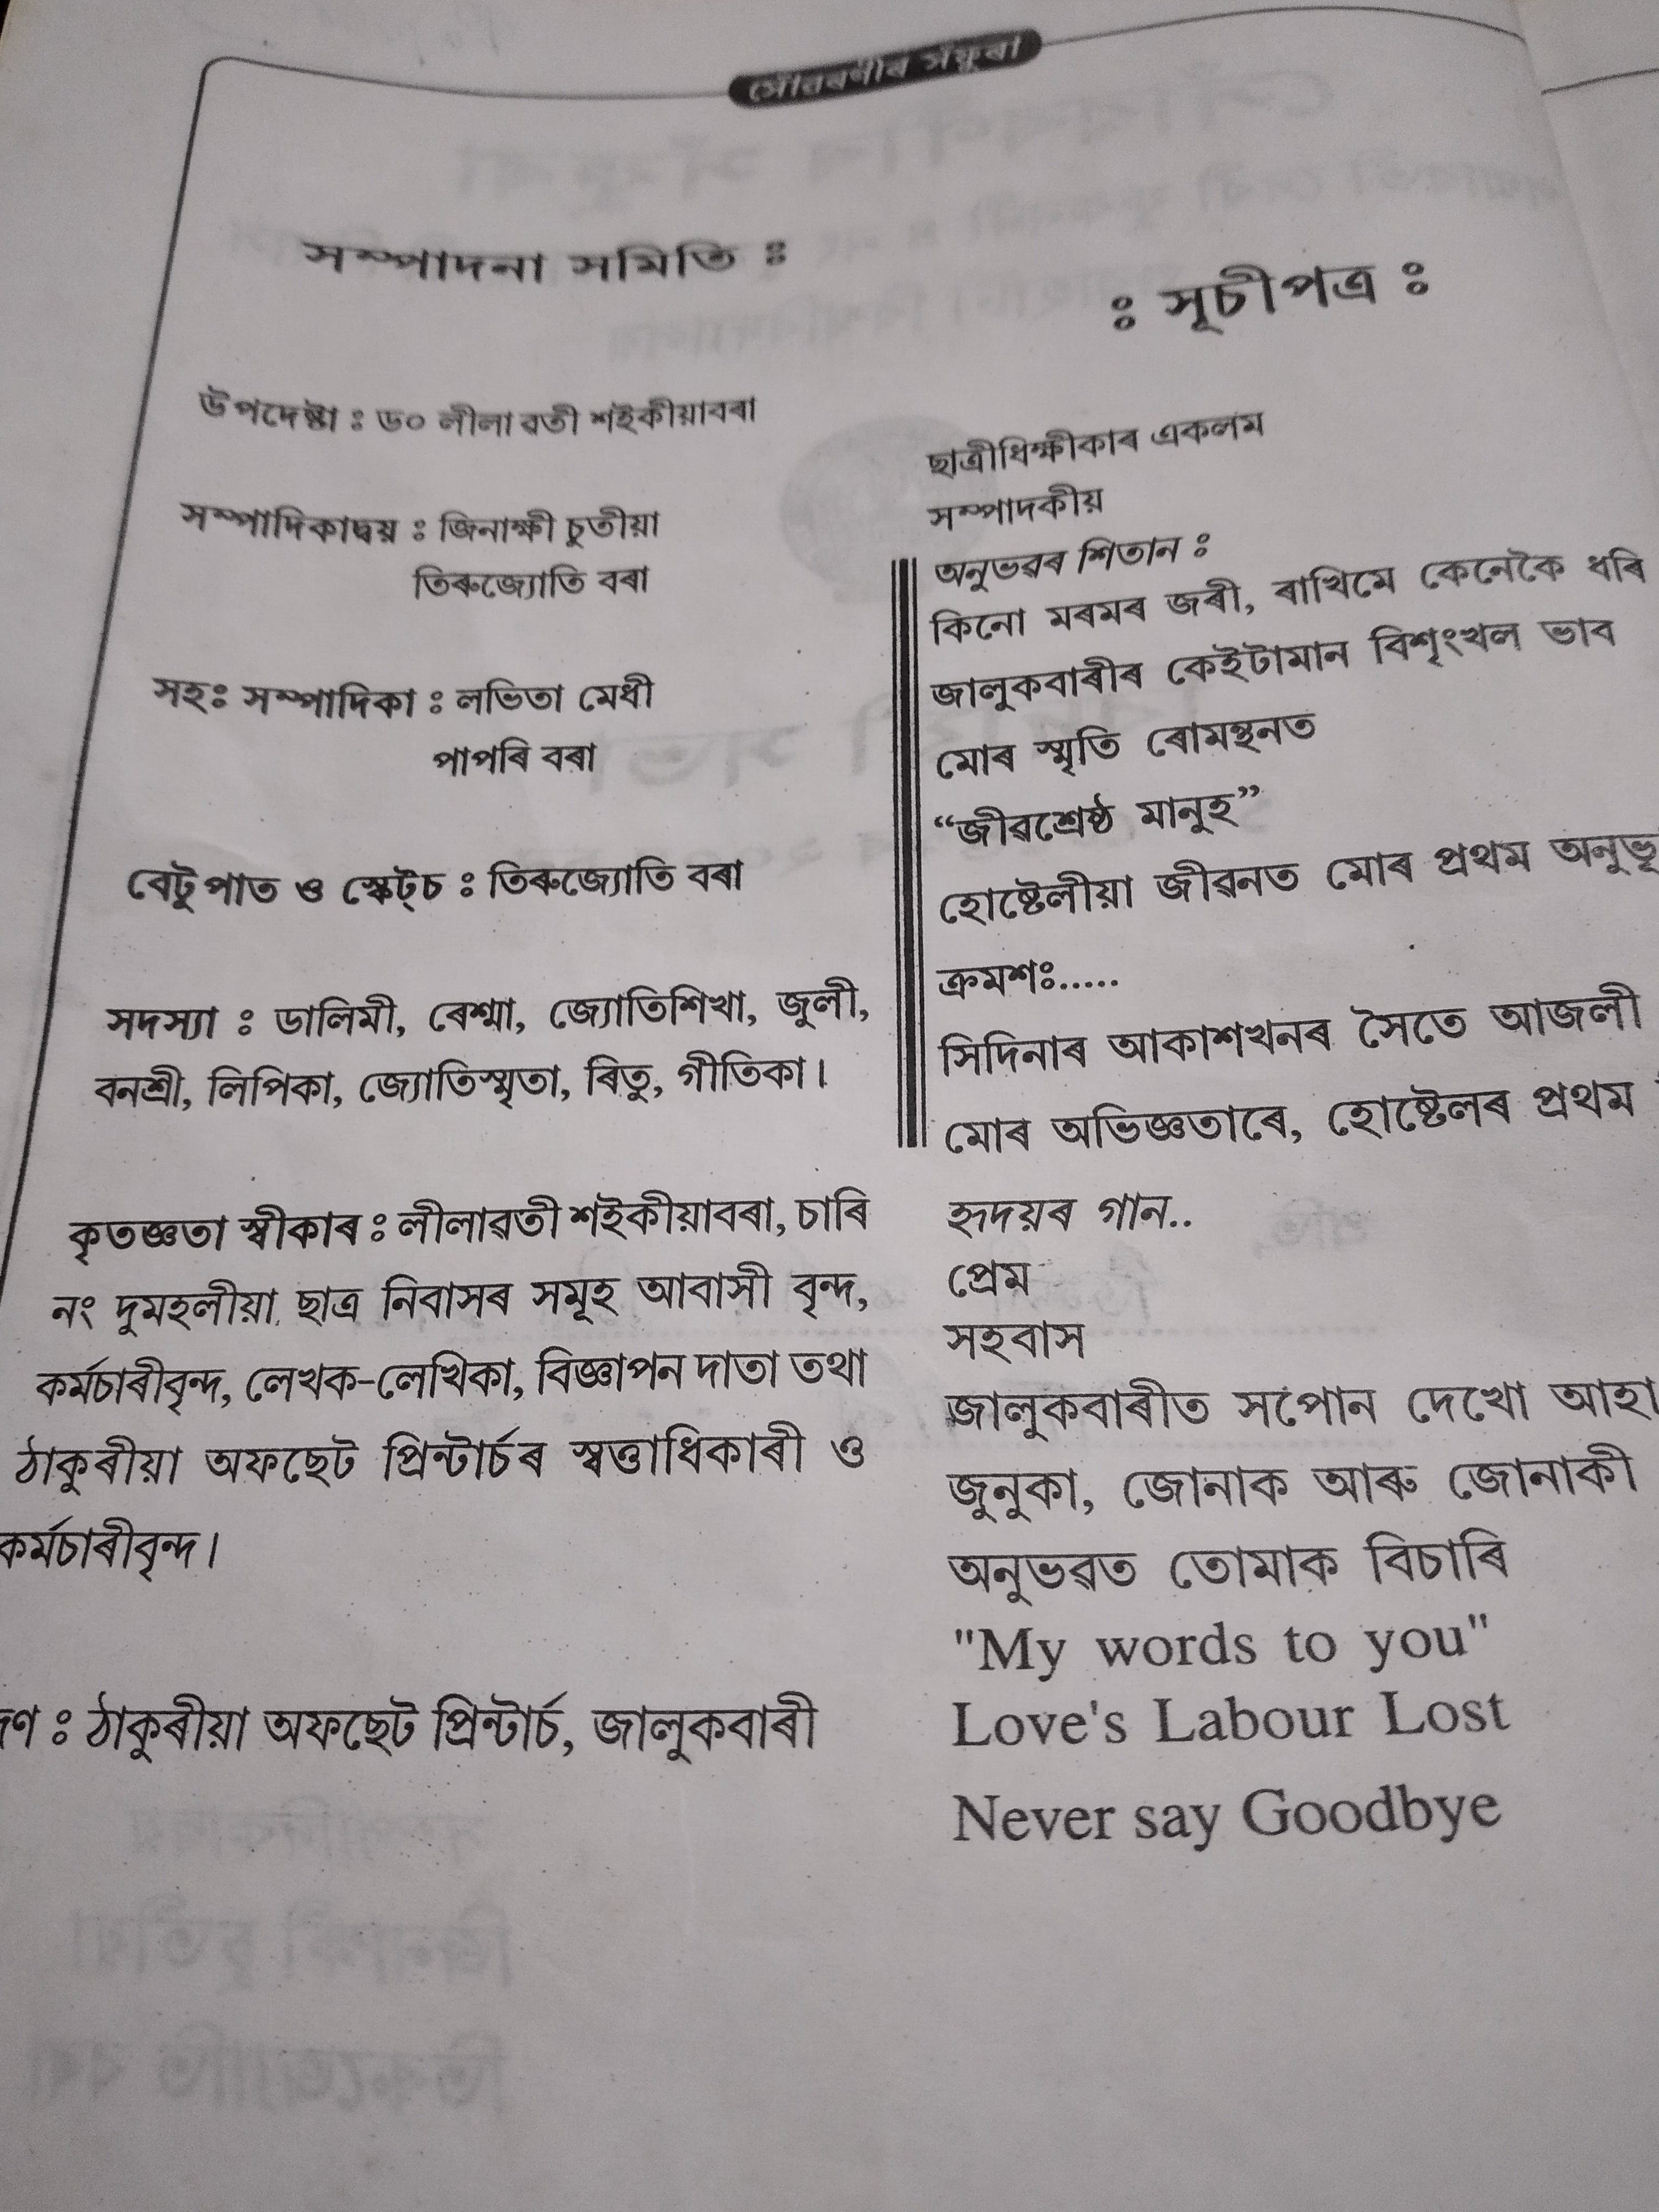 সোঁৱৰণীৰ সঁফুৰা
সম্পাদনা সমিতি ঃ
উপদেষ্টা ঃ ড০ লীলাৱতী শইকীয়াবৰা
সম্পাদিকাদ্বয় ঃ জিনাক্ষী চুতীয়া
তিৰুজ্যোতি বৰা
সহঃ সম্পাদিকা ঃ লভিতা মেধী
পাপৰি বৰা
বেটুপাত ও স্কেট্চ ঃ তিৰুজ্যোতি বৰা
সদস্যা ঃ ডালিমী, ৰেশ্মা, জ্যোতিশিখা, জুলী,
বনশ্ৰী, লিপিকা, জ্যোতিস্মৃতা, ৰিতু, গীতিকা।
কৃতজ্ঞতা স্বীকাৰ ঃ লীলাৱতী শইকীয়াবৰা, চাৰি
নং দুমহলীয়া ছাত্ৰ নিবাসৰ সমূহ আবাসী বৃন্দ,
কৰ্মচাৰীবৃন্দ, লেখক-লেখিকা, বিজ্ঞাপন দাতা তথা
ঠাকুৰীয়া অফছেট প্ৰিন্টাৰ্চৰ স্বত্তাধিকাৰী ও
কৰ্মচাৰীবৃন্দ।
ঃ ঠাকুৰীয়া অফছেট প্ৰিন্টাৰ্চ, জালুকবাৰী
ঃ সূচীপত্ৰ ঃ
ছাত্ৰীধিক্ষীকাৰ একলম
সম্পাদকীয়
অনুভৱৰ শিতান ঃ
কিনো মৰমৰ জৰী, ৰাখিমে কেনেকৈ ধৰি
জালুকবাৰীৰ কেইটামান বিশৃংখল ভাব
মোৰ স্মৃতি ৰোমন্থনত
“জীৱশ্ৰেষ্ঠ মানুহ”
হোষ্টেলীয়া জীৱনত মোৰ প্ৰথম
ক্ৰমশঃ.....
সিদিনাৰ আকাশখনৰ সৈতে আজলী
মোৰ অভিজ্ঞতাৰে, হোষ্টেলৰ প্ৰথম
হৃদয়ৰ গান..
প্ৰেম
সহবাস
জালুকবাৰীত সপোন দেখো আহা
জুনুকা, জোনাক আৰু জোনাকী
অনুভৱত তোমাক বিচাৰি
"My words to you"
Love's Labour Lost
Never say Goodbye